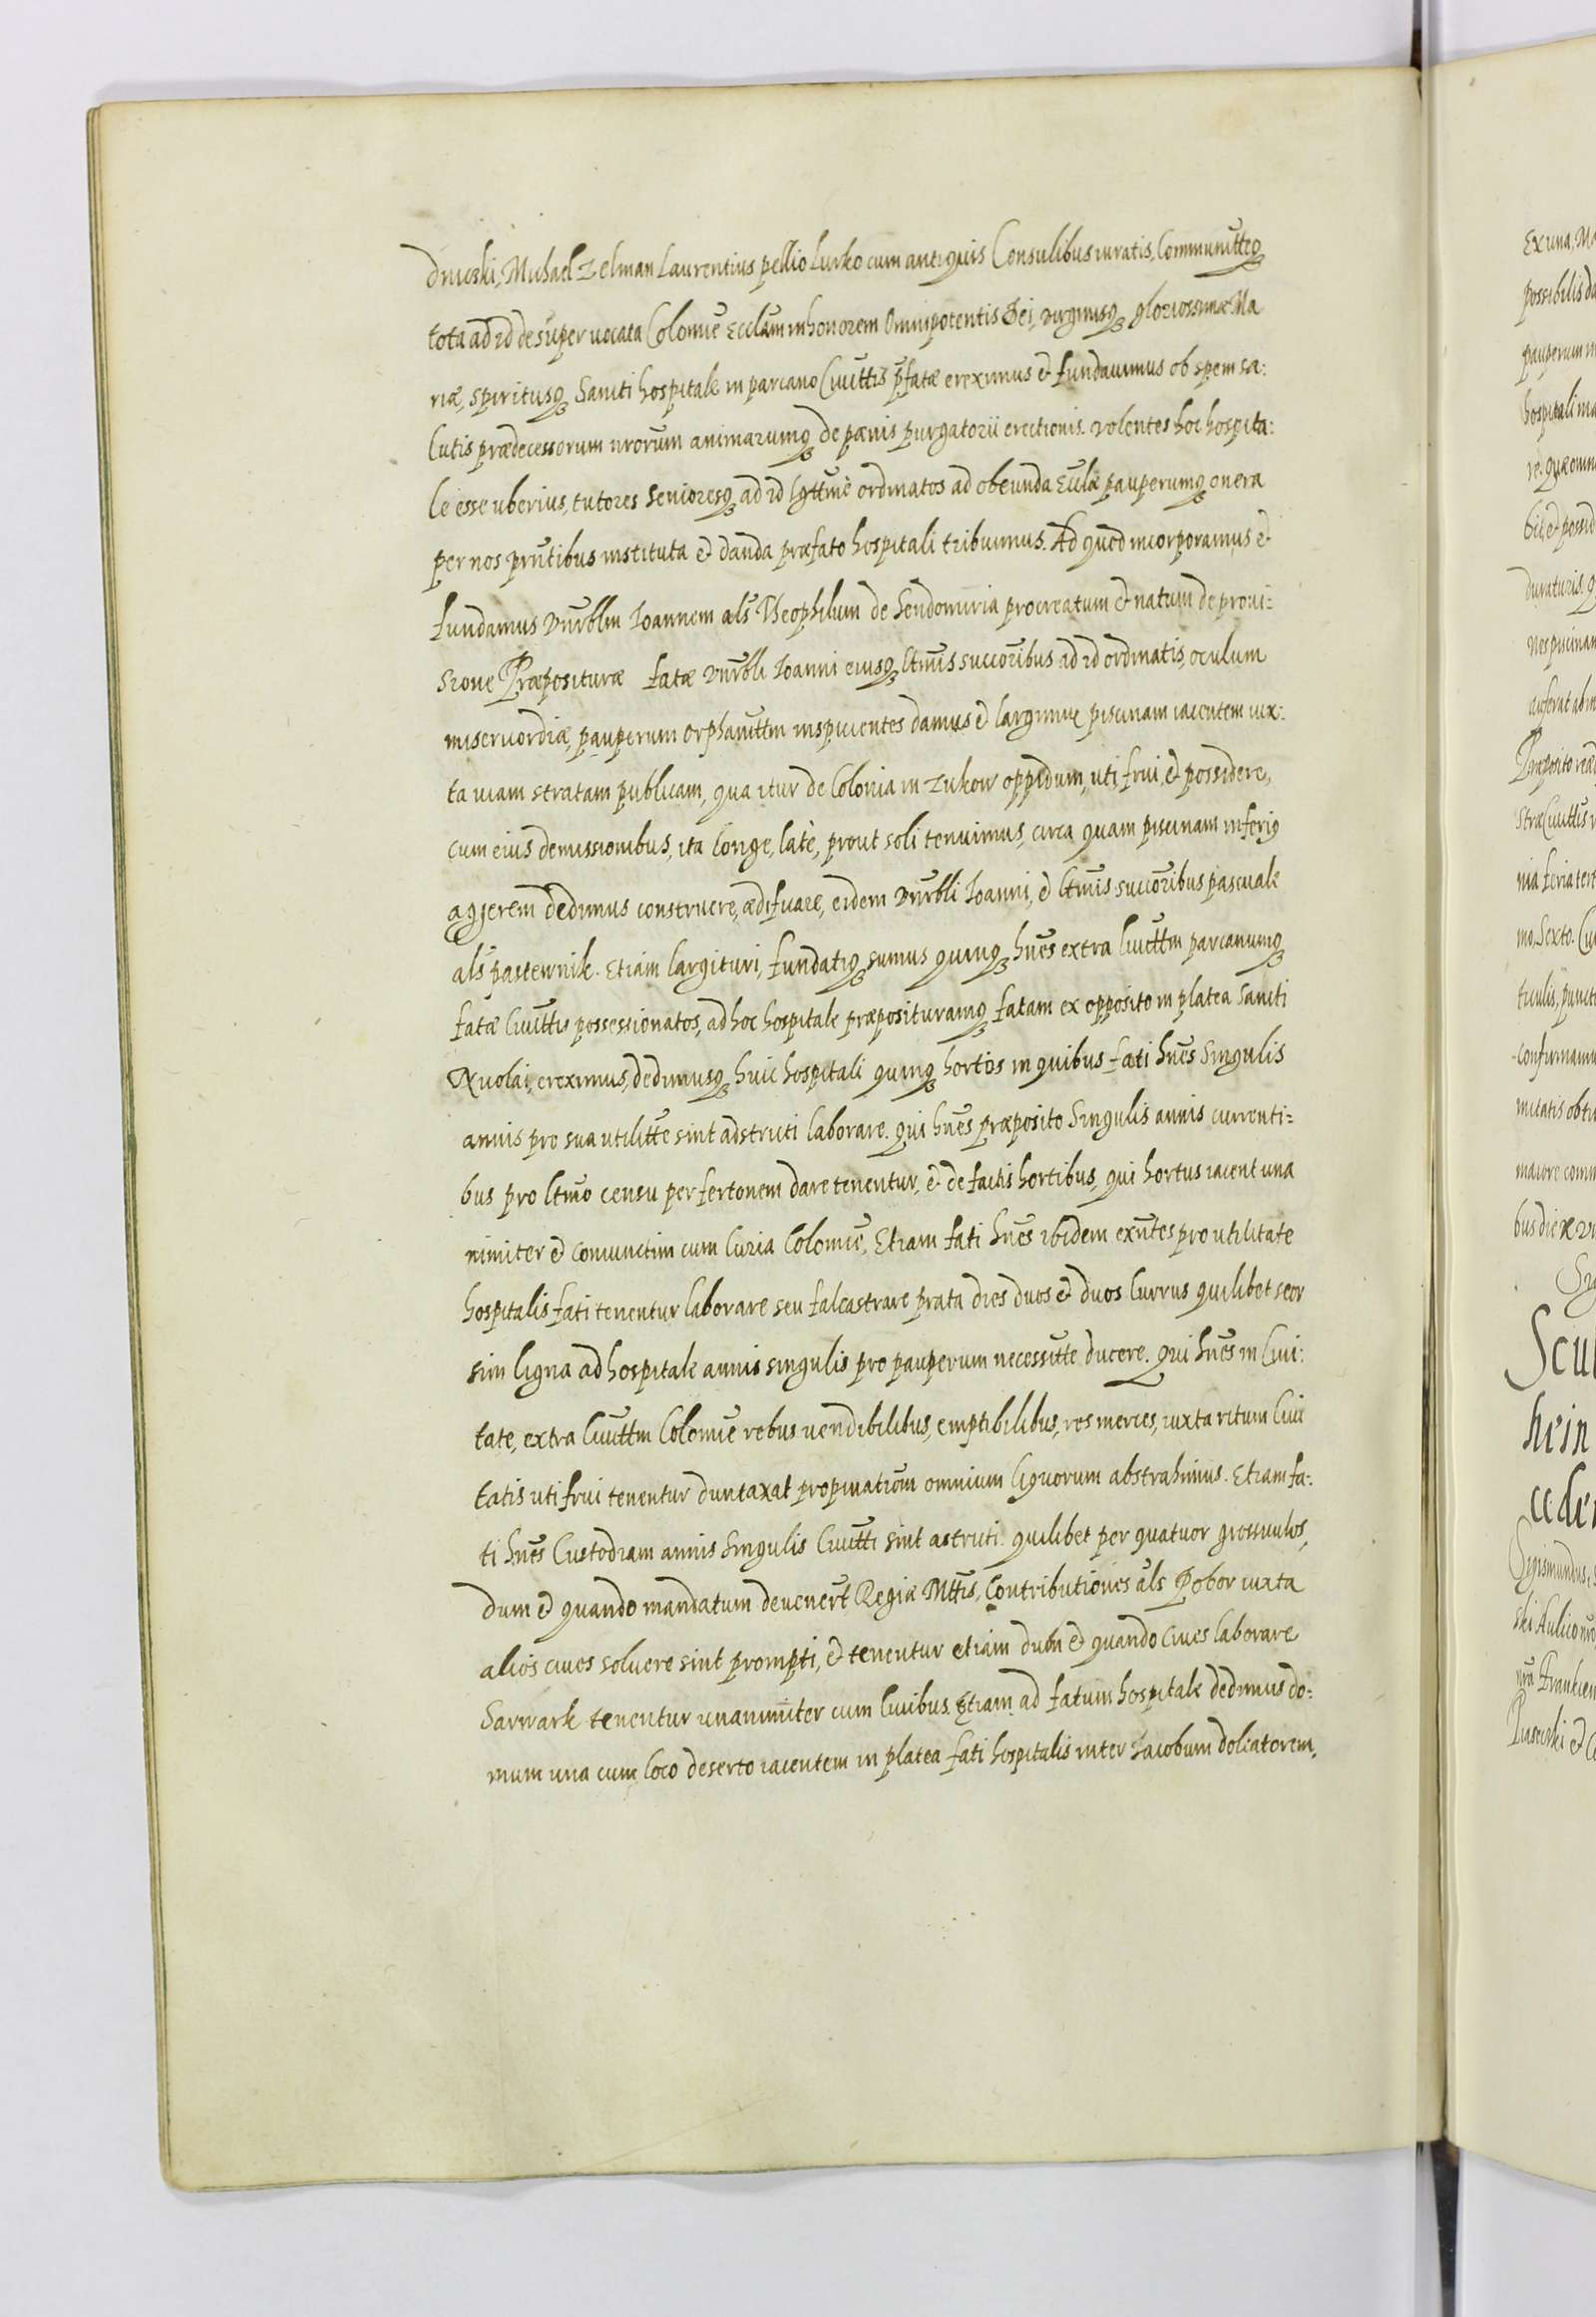 dniczki, Michael Zelman Laurentius pellio Lurko cum antiquis Consulibus iuratis, Communittēq;
tota ad id desuper vocata Colomiē Eccliam in honorem Omnipotentis Dei, virginisq; gloriossimæ Ma
riæ, spiritusq; Sancti hospitale in parcano Civittis p̄fatæ ereximus & fundavimus ob spem sa:
lutis prædecessorum nrorum animarumq; de pænis purgatorii erectionis. volentes hoc hospita:
le esse uberius, tutores senioresq; ad id lgttimè ordinatos ad obeunda Ecclæ pauperumq; onera
per nos prntibus instituta & danda præfato hospitali tribuimus. Ad quod incorporamus &
fundamus vnrblm Ioannem als Theophilum de Sendomiria procreatum & natum de provi:
sione Præposituræ fatæ vnrbli Ioanni eiusq; ltmis succoribus ad id ordinatis, oculum
misericordiæ, pauperum orphanittm inspicientes damus & largimur piscinam iacentem iux:
ta viam stratam publicam, qua itur de Colonia in Zukow oppidum, uti, frui, & possidere,
cum eius demissionibus, ita longe, latè, prout soli tenuimus, circa quam piscinam inferius
aggerem dedimus construere, ædificare, eidem vnrbli Ioanni, & ltmis succoribus pascuale
als pastewnik. Etiam largituri, fundatiq; sumus quinq; hnes extra Civittm parcanumq;
fatæ Civittis possessionatos, ad hoc hospitale præposituramq; fatam ex opposito in platea Sancti
Nicolai, ereximus, dedimusq; huic hospitali quinq; hortos in quibus fati hnes singulis
annis pro sua utilitte sint adstricti laborare. Qui hnes præposito singulis annis currenti:
bus pro ltmo censu per fertonem dare tenentur, & de factis hortibus, qui hortus iacent una
nimiter & coniunctim cum Curia Colomiē, Etiam fati hnes ibidem exntes pro utilitate
hospitalis fati tenentur laborare seu falcastrare prata dies duos & duos Currus quilibet seor
sim ligna ad hospitale annis singulis pro pauperum necessitte ducere. Qui hnes in Civi:
tate, extra Civittm Colomiē rebus vendibilibus, emptibilibus, res merces, iuxta ritum Civi
tatis uti frui tenentur duntaxat propinatiom omnium liquorum abstrahimus. Etiam fa:
ti hnes Custodiam annis singulis Civitti sint astricti. quilibet per quatuor grossiculos,
dum & quando mandatum devenerit Regiæ Mttis, Contributiones als Pobor iuxta
alios cives solvere sint prompti, & tenentur etiam dum & quando Cives laborare
Sarwark tenentur unanimiter cum Civibus. Etiam ad fatum hospitale dedimus do:
mum una cum loco deserto iacentem in platea fati hospitalis inter Iacobum doliatorem,